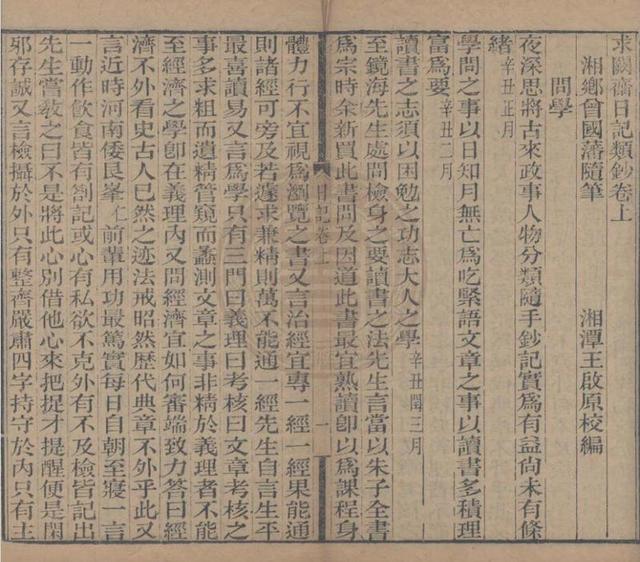 求闕齋日記類鈔卷上
湘鄉曾國藩隨筆 湘潭王啟原校編
問學
夜深思將古來政事人物分類隨手鈔記實爲有益尚未有條
緒辛丑正月
學問之事以日知月無亡爲吃緊語文章之事以讀書多積理
富爲要辛丑二月
讀書之志須以困勉之功志大人之學辛丑閏三月
至鏡海先生處問檢身之要讀書之法先生言當以朱子全書
爲宗時余新買此書問及因道此書最宜熟讀卽以爲課程身
日記卷上 一
體力行不宜視爲瀏覽之書又言治經宜專一經一經果能通
則諸經可旁及若遽求兼精則萬不能通一經先生自言生平
最喜讀易又言爲學只有三門曰義理曰考核曰文章考核之
事多求粗而遺精管窺而蠡測文章之事非精於義理者不能
至經濟之學卽在義理內又問經濟宜如何審端致力答曰經
濟不外看史古人已然之迹法戒昭然歷代典章不外乎此又
言近時河南倭艮峯仁前輩用功最篤實每日自朝至寢一言
一動作飲食皆有劄記或心有私欲不克外有不及檢皆記出
先生嘗敎之曰不是將此心別借他心來把捉才提醒便是閑
邪存誠又言檢攝於外只有整齊嚴肅四字持守於內只有主